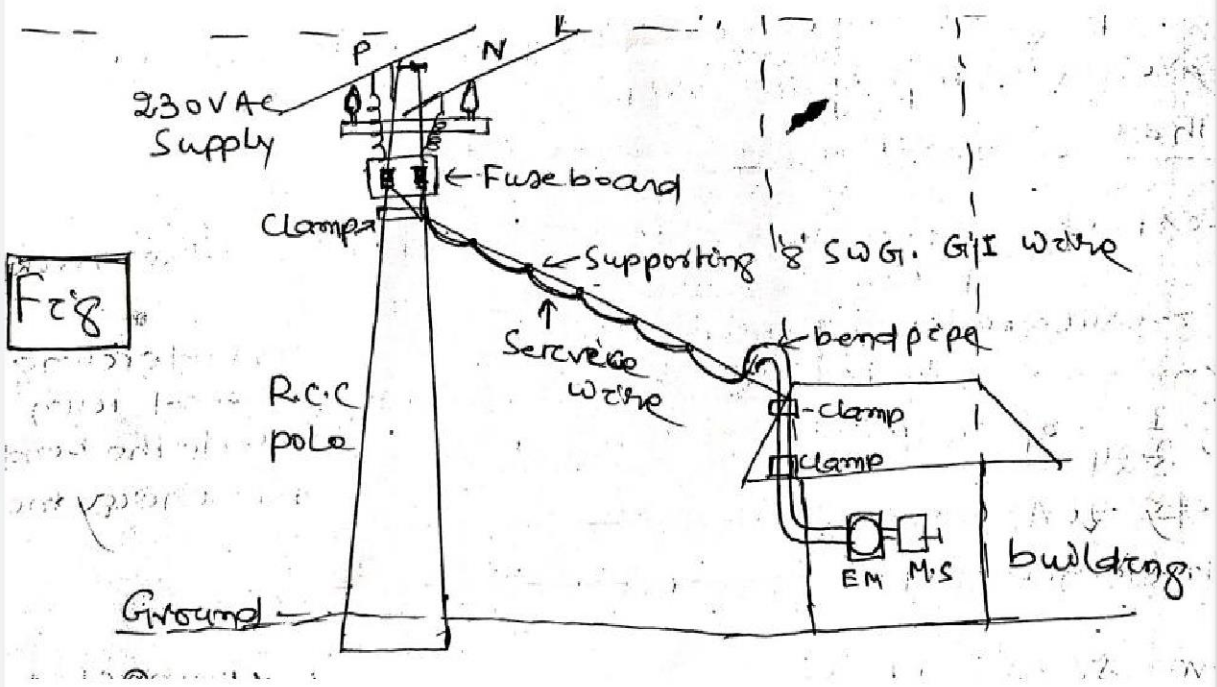 P
N
230V AC
Supply
Fuse board
Clamp
Supporting '8' SWG. G/I Wire
Fig
Service
wire
bend pipe
R.C.C
pole
clamp
clamp
EM
M.S
building.
Ground